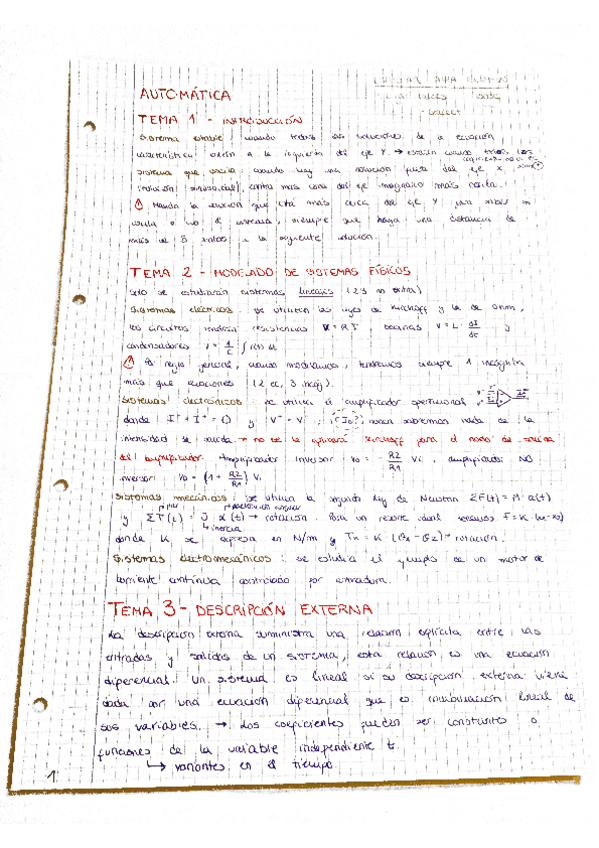 AUTOMÁTICA
TEMA 1 - INTRODUCCIÓN
Sistema estable: cuando todas las soluciones de la ecuación
característica están a la izquierda del eje Y. → estarán cuando todos los
sistema que oscila: cuando hay una solución fuera del eje X
(solución sinusoidal), contra más cerca del eje imaginario más oscila.
Manda la solución que está más cerca del eje Y para saber si
oscila o no el sistema, siempre que haya una distancia de
más de 5 a la siguiente solución.
TEMA 2 - MODELADO DE SISTEMAS FÍSICOS
Solo se estudiarán sistemas lineales (2·3 no entra)
Sistemas eléctricos: se utilizan las leyes de Kirchhoff y la de Ohm,
los circuitos resistencias V = R I bobinas V = L · dI/dt y
condensadores V = 1/C ∫ i(t) dt
Por regla general, cuando modelamos, tendremos siempre 1 incógnita
más que ecuaciones (2 ec, 3 incóg).
Sistemas electrónicos: se utiliza el amplificador operacional
donde I⁻ + I⁺ = 0 y V⁻ = V⁺; (I₀) nunca sabremos nada de la
intensidad de salida → no se le aplicará Kirchhoff para el nodo de salida
del amplificador. Amplificador inversor V₀ = - R2/R1 Vi, amplificador NO
inversor: V₀ = (1 + R2/R1) Vi
Sistemas mecánicos: se utiliza la segunda ley de Newton ΣF(t) = M · a(t)
y ΣT(t) = J α(t) → rotación. Para un resorte ideal tenemos F = K · (x₁-x₂)
inercia
donde K se expresa en N/m y Tk = K · (θ₁ - θ₂) → rotación.
Sistemas electromecánicos: se estudia el ejemplo de un motor de
corriente continua controlado por armadura.
TEMA 3 - DESCRIPCIÓN EXTERNA
La descripción externa suministra una relación explícita entre las
entradas y salidas de un sistema, esta relación es una ecuación
diferencial. Un sistema es lineal si su descripción externa viene
dada por una ecuación diferencial que es combinación lineal de
sus variables. → Los coeficientes pueden ser constantes o
funciones de la variable independiente t.
↳ variantes en el tiempo
1